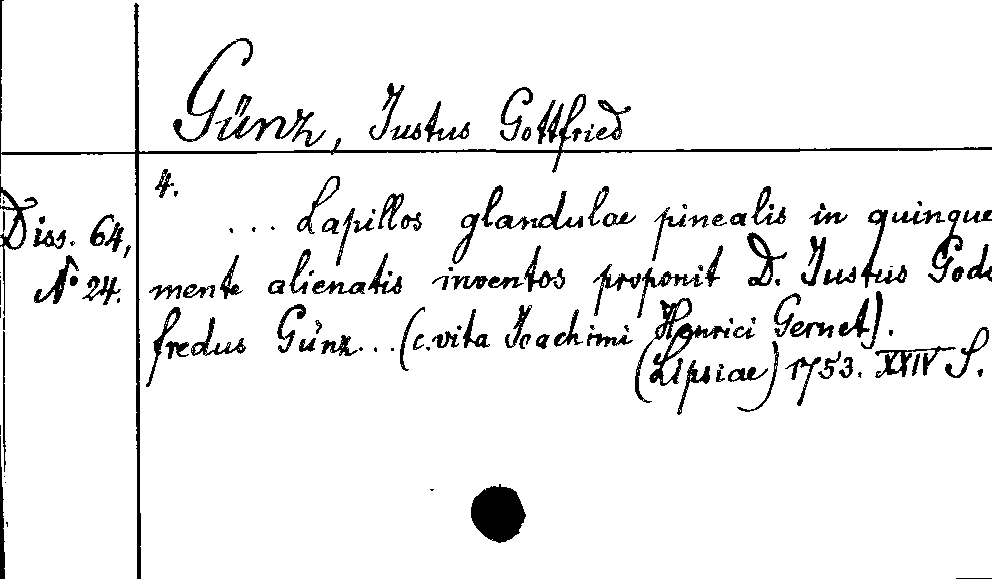 Günz, Justus Gottfried
4.
Diss. 64,
No 24.
... Lapillos glandulae pinealis in quinque
mente alienatis inventos proponit D. Justus Gode
fredus Günz...(c.vita Joachimi Henrici Gernet).
(Lipsiae) 1753. XXIV S.